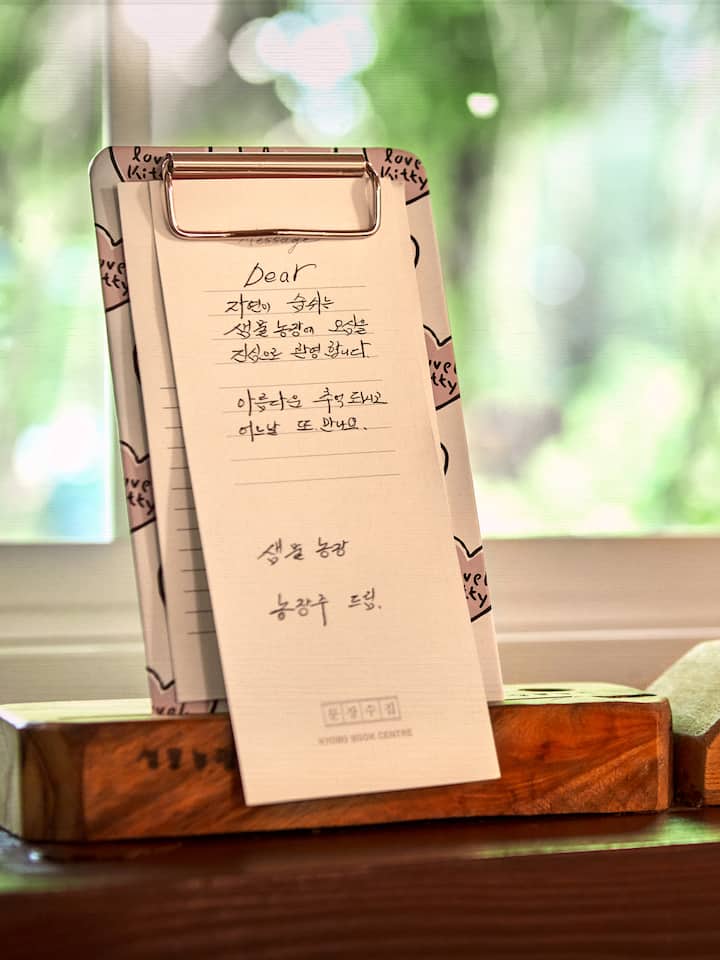 love
Kitty
love
Kitty
Message
Dear
자연이 숨쉬는
샘물 농장에 오심을
진심으로 환영 합니다
아름다운 추억 되시고
어느날 또 만나요.
샘물 농장
농장주 드림.
문장수집
KYOBO BOOK CENTRE
샘물농장